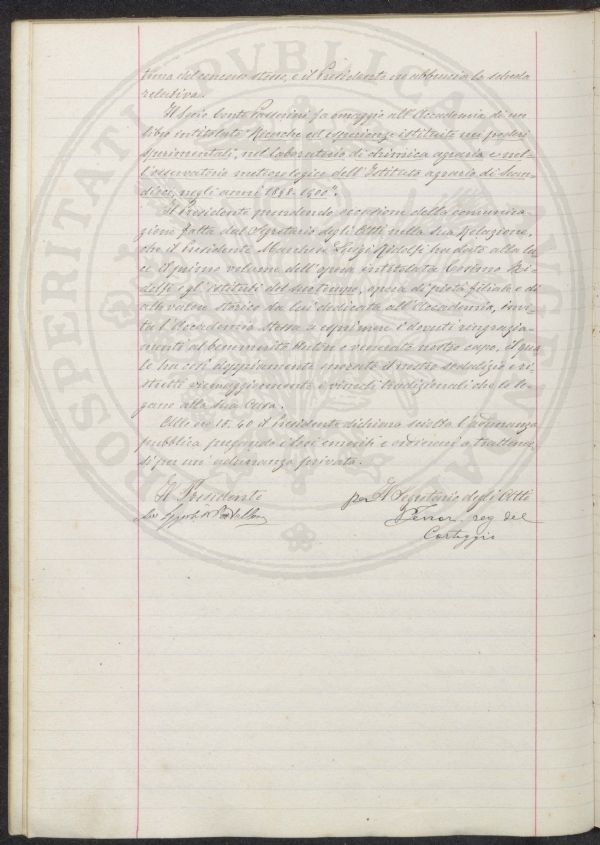 tema del concorso stesso, e il Presidente ne abbraccia la scheda
relativa.
Il Socio Conte Passerini fa omaggio all'Accademia di un
libro intitolato "Ricerche ed esperienze istituite nei poderi
sperimentali, nel laboratorio di chimica agraria e nel-
l'osservatorio meteorologico dell'Istituto agrario di Scan-
dicci, negli anni 1898-1900".
Il Presidente prendendo occasione della comunica-
zione fatta dal Segretario degli Atti nella sua Relazione,
che il Presidente Marchese Luigi Ridolfi ha dato alla lu-
ce il primo volume dell'opera intitolata Cosimo Ri-
dolfi e gl'istituti del suo tempo, opera di pietà filiale e di
alto valore storico da lui dedicata all'Accademia, invi-
ta l'Accademia stessa a esprimere i dovuti ringrazia-
menti al benemerito Autore e venerato nostro capo, il qua-
le ha così degnamente onorato il nostro sodalizio e ri-
stretti vicmaggiormente i vincoli tradizionali che lo le-
gano alla sua Casa.
Alle ore 15.40 il Presidente dichiara sciolta l'adunanza
pubblica pregando i Soci emeriti e ordinari a trattener-
si per un'adunanza privata.
Il Presidente
per Il Segretario degli Atti
seg del
Carteggio
PROSPERITATI PVBLICAE AVGENDAE